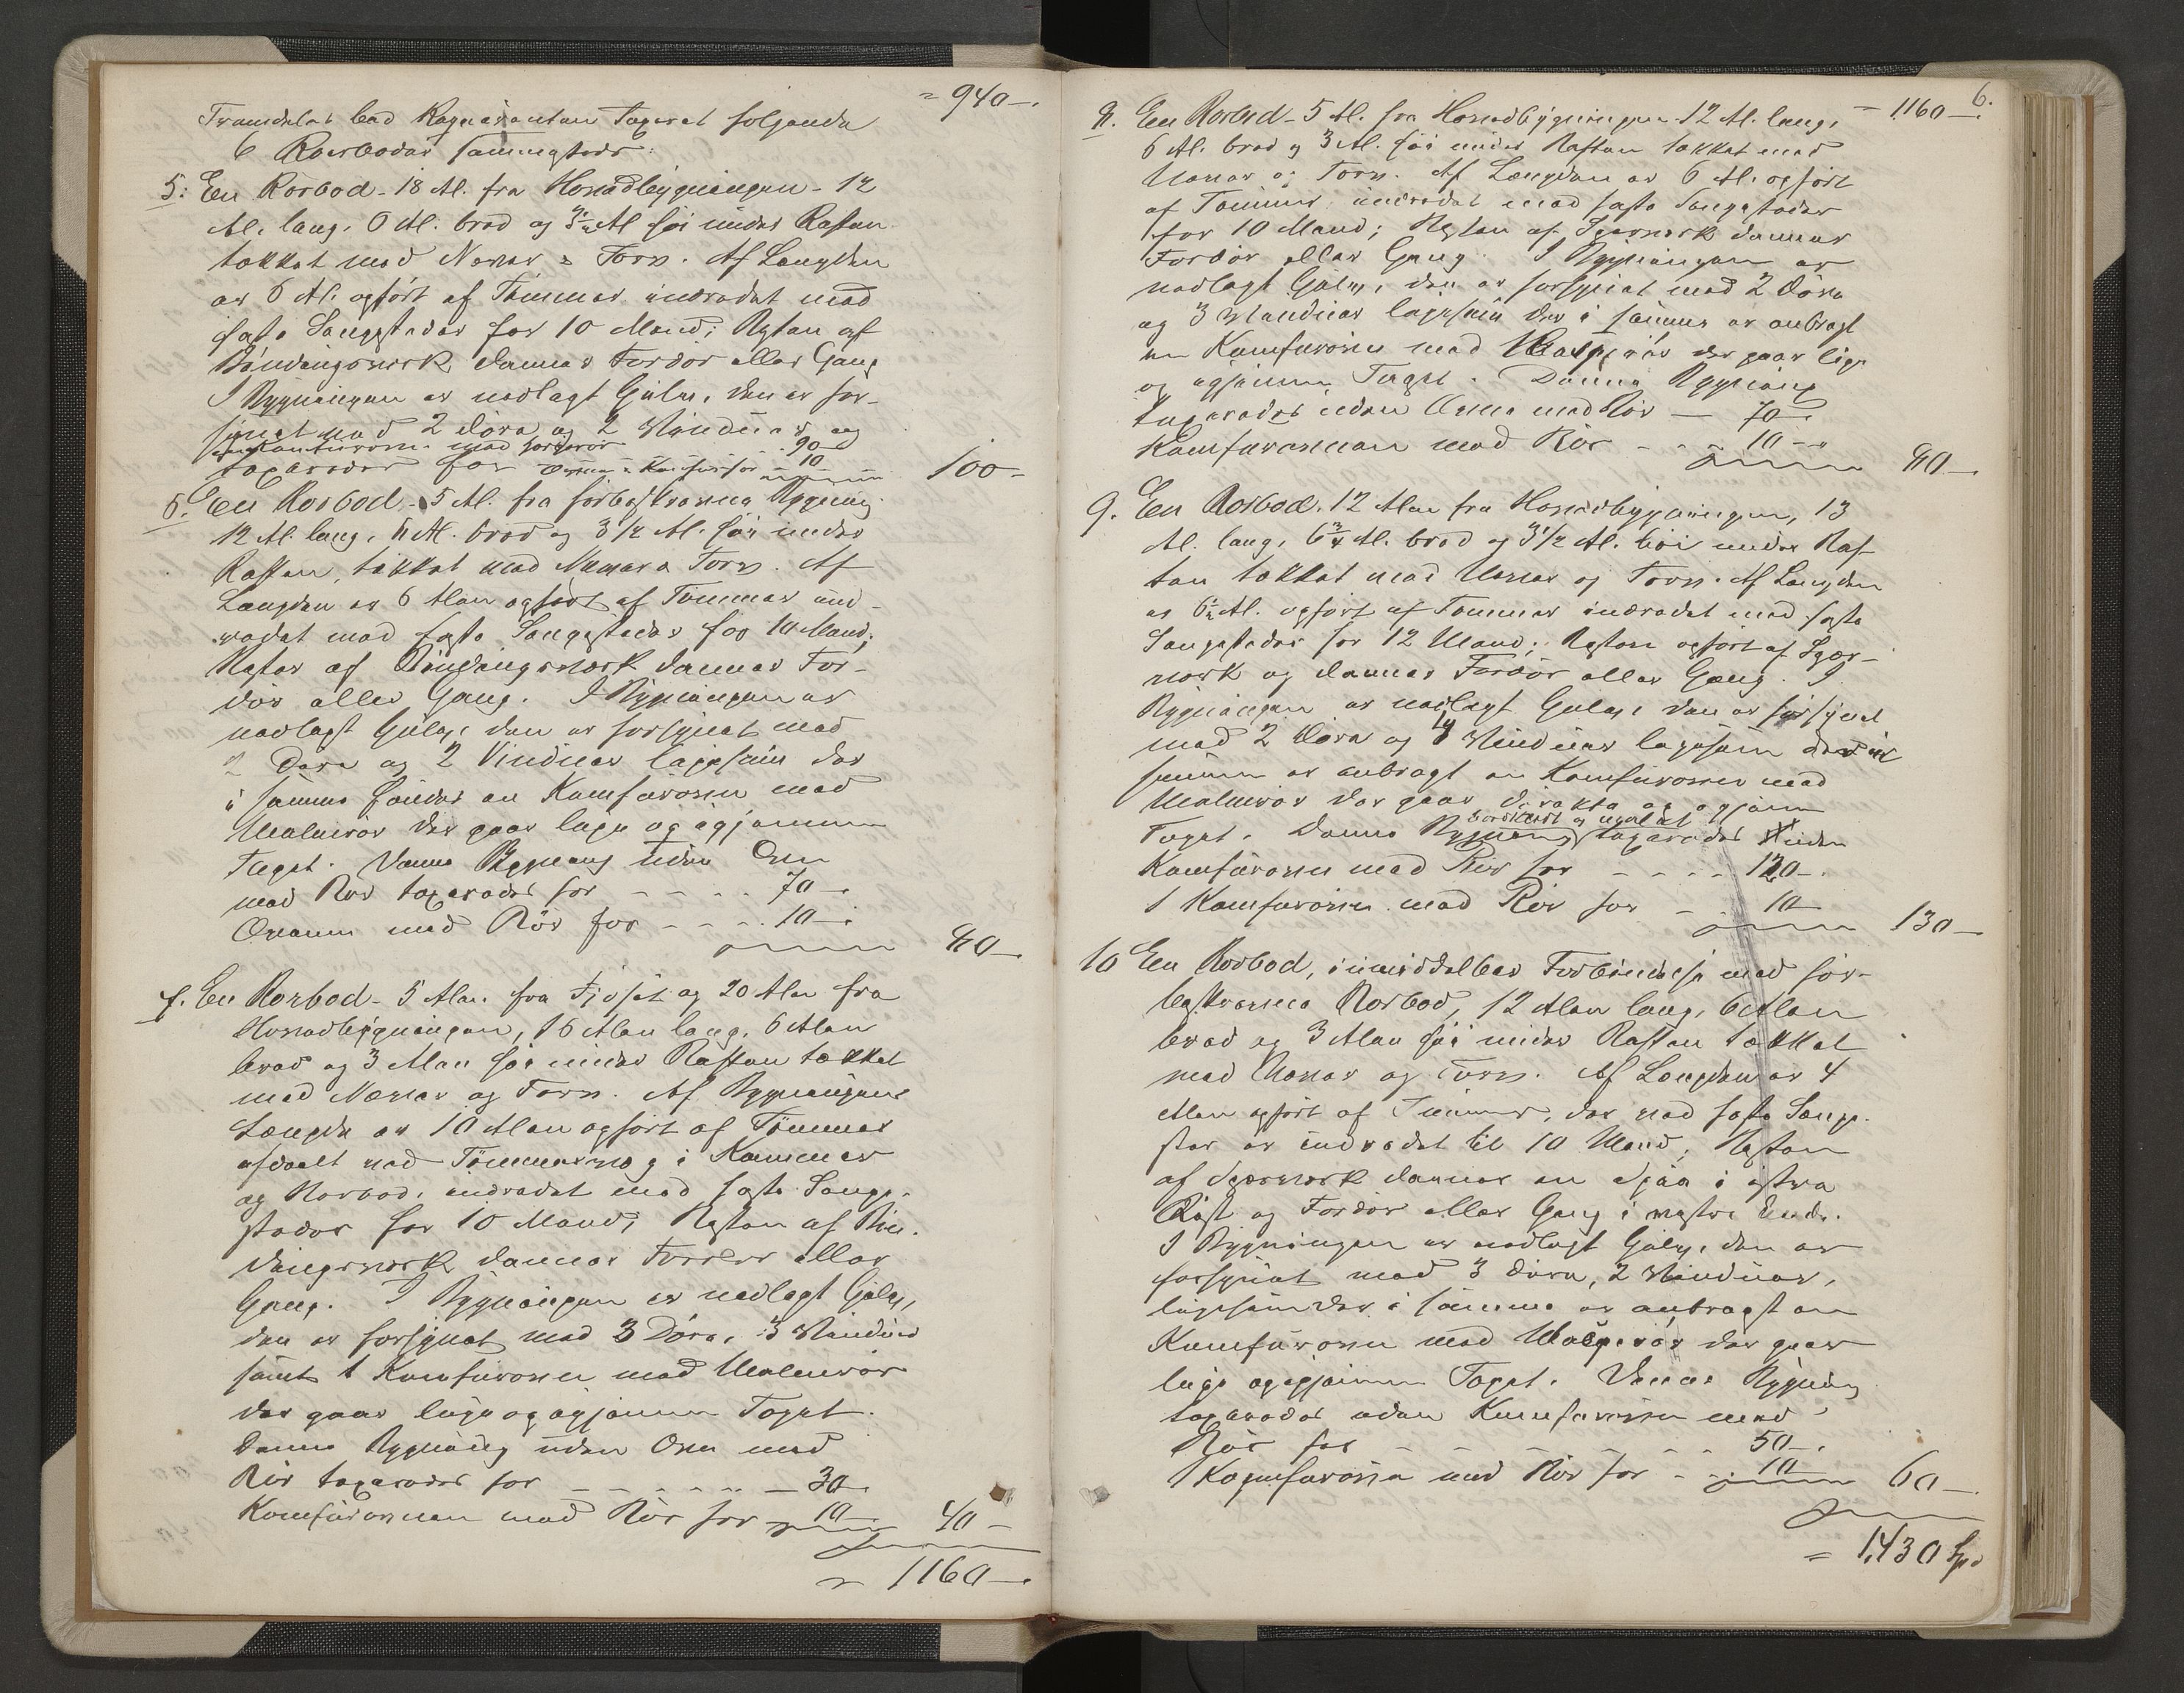 = 940 –.
Fremdeles bad Reqvirenten taxeret følgende
6 Roerboder sammesteds:
5: En Rorbod – 18 Al. fra Hovedbygningen – 12
Al. lang, 6 Al. bred og 3½ Al høi under Raften
tækket med Næver & Torv. Af Længden
er 6 Al. opført af Tømmer indredet med
faste Sengesteder for 10 Mand; Resten af
Bindingsverk danner Fordør eller Gang
I Bygningen er nedlagt Gulv, den er for-
synet med 2 Døre og 2 Vinduer og
en Komfurovn med Jordrør 90
taxeredes for Ovnen – 10
100 –
6. En Rorbod – 5 Al. fra forbeskrevne Bygning
12 Al. lang, 6 Al. bred og 3 1/2 Al. høi under
Raften, tækket med Næver & Torv. Af
Længden er 6 Alen opført af Tømmer ind-
redet med faste Sengesteder for 10 Mand;
Resten af Bindingsværk danner For-
dør eller Gang. I Bygningen er
nedlagt Gulv, den er forsynet med
2 Døre og 2 Vinduer ligesom der
i samme findes en Komfurovn med
Malmrør der gaar lige op igjennem
Taget. Denne Bygning uden Ovn
med Rør taxeredes for – – – . 70 –.
Ovnen med Rør for – – – . 10 –.
80 –.
7. En Rorbod – 5 Alen fra Fjøset og 20 Alen fra
Hovedbygningen, 16 Alen lang, 6 Alen
bred og 3 Alen høi under Raften tækket
med Næver og Torv. Af Bygningens
Længde er 10 Alen opført af Tømmer
afdeelt med Tømmervæg i Kammer
og Rorbod, indredet med faste Senge-
steder for 10 Mand; Resten af Bin-
dingsverk danner Fordør eller
Gang. I Bygningen er nedlagt Gulv,
den er forsynet med 3 Døre, 3 Vinduer
samt 1 Komfurovn med Malmrør
der gaar lige op igjennem Taget.
Denne Bygning uden Ovn med
Rør taxeredes for – – – – – 30.
Komfurovnen med Rør for 10 –. 40 –
= 1160 –.
6.
= 1160 –.
8. En Rorbod – 5 Al. fra Hovedbygningen 12 Al. lang,
6 Al. bred og 3 Al. høi under Raften tækket med
Næver og Torv. Af Længden er 6 Al. opført
af Tømmer, indredet med faste Sengesteder
for 10 Mand; Resten af Skjærverk danner
Fordør eller Gang. I Bygningen er
nedlagt Gulv, den er forsynet med 2 Døre
og 3 Vinduer ligesom der i samme er anbragt
en Komfurovn med Malmrør der gaar lige
op igjennem Taget. Denne Bygning
taxeredes uden Ovne med Rør – 70 –.
Komfurovnen med Rør – – – 10 –.
80 –.
9. En Rorbod. 12 Alen fra Hovedbygningen, 13
Al. lang, 6¾ Al. bred og 3 1/2 Al. høi under Raf-
ten tækket med Næver og Torv. Af Længden
er 6½ Al. opført af Tømmer indredet med faste
Sengesteder for 12 Mand; Resten opført af Skjær-
værk og danner Fordør eller Gang. I
Bygningen er nedlagt Gulv, den er forsynet
med 2 Døre og 4 Vinduer ligesom der i
samme er anbragt en Komfurovn med
Malmrør der gaar direkte op igjennem
Taget. Denne Bygning bordklædt og malet taxeredes uden
Komfurovn med Rør for – – – – 120 –.
1 Komfurovn med Rør for – . 10
130 –.
10 En Rorbod, i umiddelbar Forbindelse med for-
beskrevne Rorbod, 12 Alen lang, 6 Alen
bred og 3 Alen høi under Raften tækket
med Næver og Torv. Af Længden er 4
Alen opført af Tømmer, der med faste Senge-
ster er indredet til 10 Mand; Resten
af Skjærverk danner en Sjaa i østre
Røst og Fordør eller Gang i vestre Ende.
I Bygningen er nedlagt Gulv, den er
forsynet med 3 Døre, 2 Vinduer,
ligesom der i samme er anbragt en
Komfurovn med Malmrør der gaar
lige op igjennem Taget. Denne Bygning
taxeredes uden Komfurovn med
Rør for – – – – – – . 50 –.
1 Komfurovn med Rør for – . 10 60 –.
= 1,430 Spd